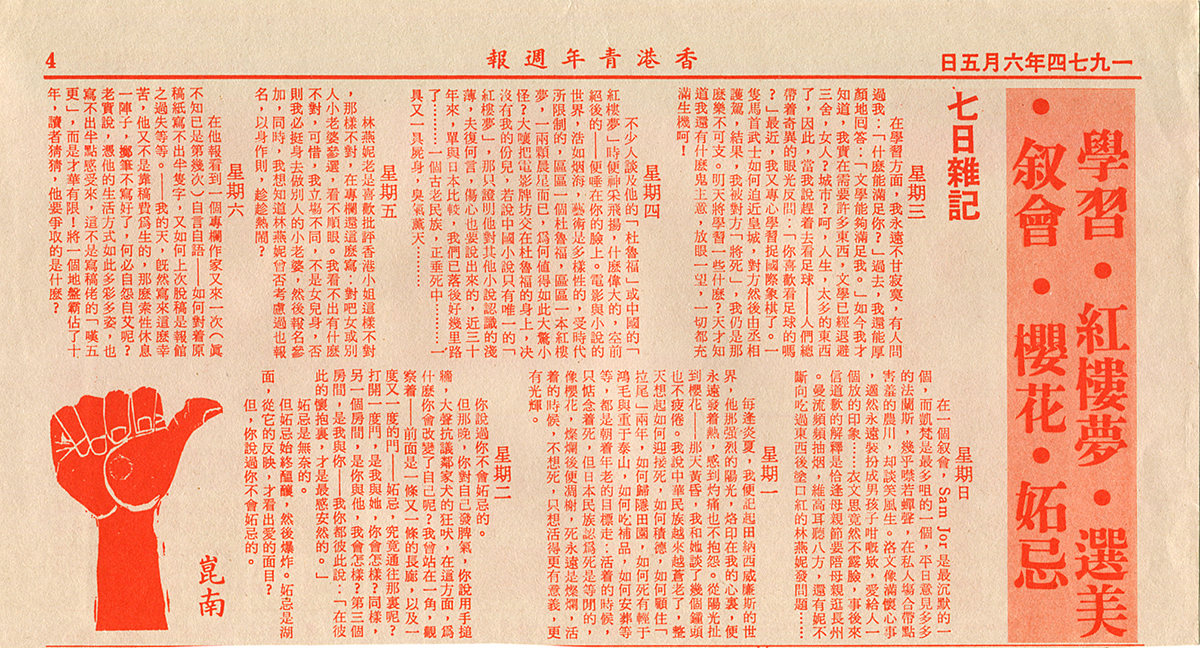 一九七四年六月五日
香港青年週報
4
學習・紅樓夢・選美
・叙會・櫻花・妬忌
七日雜記
星期三
在學習方面，我永遠不甘寂寞，有人問
過我：「什麼能滿足你？」過去，我還能厚
顏地回答：「文學能夠滿足我。」如今我才
知道，我實在需要許多東西，文學已經退避
三舍，女人？城市？呵，人生，太多的東西
了，因此，當我說趕着去看足球——人們總
帶着奇異的眼光反問：「你喜歡看足球的嗎
？」最近，我又專心學習捉國際象棋了。一
隻馬首武士如何迫近皇城，對方然後由丞相
護駕，結果，我被對方「將死」，我仍是那
麼樂不可支。明天將學習一些什麼？天才知
道我還有什麼鬼主意！放眼一望，一切都充
滿生機呵！
星期四
不少人談及他的「杜魯福」或中國的「
紅樓夢」時便神采飛揚，什麼偉大的，空前
絕後的——便唾在你的臉上。電影與小說的
世界，浩如烟海，藝術是多樣性的，受時代
所限制的，區區一個杜魯福，區區一本紅樓
夢，一兩顆晨星而已，爲何值得如此大驚小
怪？大嚷把電影牌坊交在杜魯福的身上，决
沒有我的份兒，若說中國小說只有唯一的「
紅樓夢」，那只證明他對其他小說認識的淺
薄，夫復何言，傷心也要說出來的，近三十
年來，單與日本比較，我們已落後好幾里路
了……一個古老民族，正垂死中………一
具又一具屍身，臭氣薰天……
星期五
林燕妮老是喜歡批評香港小姐這樣不對
，那樣不對，在專欄還這麼寫：對吧女或別
人小老婆參選，看不順眼。我看不出有什麼
不對，可惜，我立場不同，不是女兒身，否
則我必挺身去做別人的小老婆，然後報名參
加，同時，我想知道林燕妮曾否考慮過也報
名，以身作則，趁趁熱鬧？
星期六
在他報看到一個專欄作家又來一次（眞
不知已是第幾次）自言自語——如何對着原
稿紙寫不出半隻字，又如何上次脫稿是報館
之過失等等。——我的天，旣然寫來這麼辛
苦，他又不是靠稿費爲生的，那麼索性休息
一陣子，擲筆不寫好了，何必自怨自艾呢？
老實說，憑他的生活方式如此多彩多姿，也
寫不出半點感受來，這不是寫稿佬的「嘆五
更」，而是才華有限！將一個地盤霸佔了十
年，讀者猜猜，他要爭取的是什麼？
星期日
在一個叙會，Sam Jor是最沉默的一
個，而凱梵是最多咀的一個，平日意見多多
的法蘭斯，幾乎噤若蟬聲，在私人場合帶點
害羞的農川，却談笑風生。洛文像滿懷心事
，邁然永遠裝扮成男孩子咁嘅欵，愛給人一
個放的印象……衣文思竟然不露臉，事後來
信道歉的解釋是恰逢母親節要陪母親逛長州
。曼流頻頻抽烟，維高耳聽八方，還有妮不
斷向吃過東西後塗口紅的林燕妮發問題……
星期一
每逢炎夏，我便記起田納西威廉斯的世
界，他那强烈的陽光，烙印在我的心裏，便
永遠發着熱，感到灼痛也不抱怨。從陽光扯
到櫻花——那天黃昏，我和她談了幾個鐘頭
也不疲倦。我說中華民族越來越蒼老了，整
天想起如何迎接死，如何積德，如何顧住「
拉尾」兩年，如何歸隱田園，如何死有輕于
鴻毛與重于泰山，如何吃補品，如何安葬等
等，都是朝着年老的目標走：活着的時候，
只惦念着死，但日本民族認爲死是等閒的，
像櫻花，燦爛後便凋榭，死永遠是燦爛，活
着的時候，不想死，只想活得更有意義，更
有光輝。
星期二
你說過你不會妬忌的。
但那晚，你對自己發脾氣，你說用手搥
牆，大聲抗議鄰家犬的狂吠，在這方面，爲
什麼你會改變了自己呢？我曾站在一角，觀
察着——前面是一條又一條的長廊，以及一
度又一度的門——妬忌，究竟通往那裏呢？
打開一度門，是我與她，你會怎樣？同樣，
另一個房間，是你與他，我會怎樣？第三個
房間，是我與你——我你都彼此說：「在彼
此的懷抱裏，才是最感安然的。」
妬忌是無奈的。
但妬忌始終醞釀，然後爆炸。妬忌是湖
面，從它的反映，才看出愛的面目？
但，你說過你不會妬忌的。
崑南